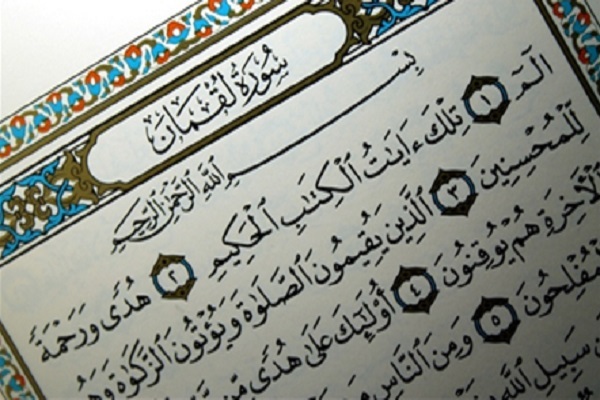 سُورَةُ لُقْمَانَ
بِسْمِ ٱللَّهِ ٱلرَّحْمَٰنِ ٱلرَّحِيمِ
الٓمٓ ١ تِلْكَ ءَايَٰتُ ٱلْكِتَٰبِ ٱلْحَكِيمِ ٢ هُدًى وَرَحْمَةً
لِّلْمُحْسِنِينَ ٣ ٱلَّذِينَ يُقِيمُونَ ٱلصَّلَوٰةَ وَيُؤْتُونَ ٱلزَّكَوٰةَ وَهُم
بِٱلْأَخِرَةِ هُمْ يُوقِنُونَ ٤ أُو۟لَٰٓئِكَ عَلَىٰ هُدًى مِّن
ٱلْمُفْلِحُونَ ٥ وَمِنَ ٱلنَّاسِ مَن
عَن سَبِيلِ ٱللَّهِ